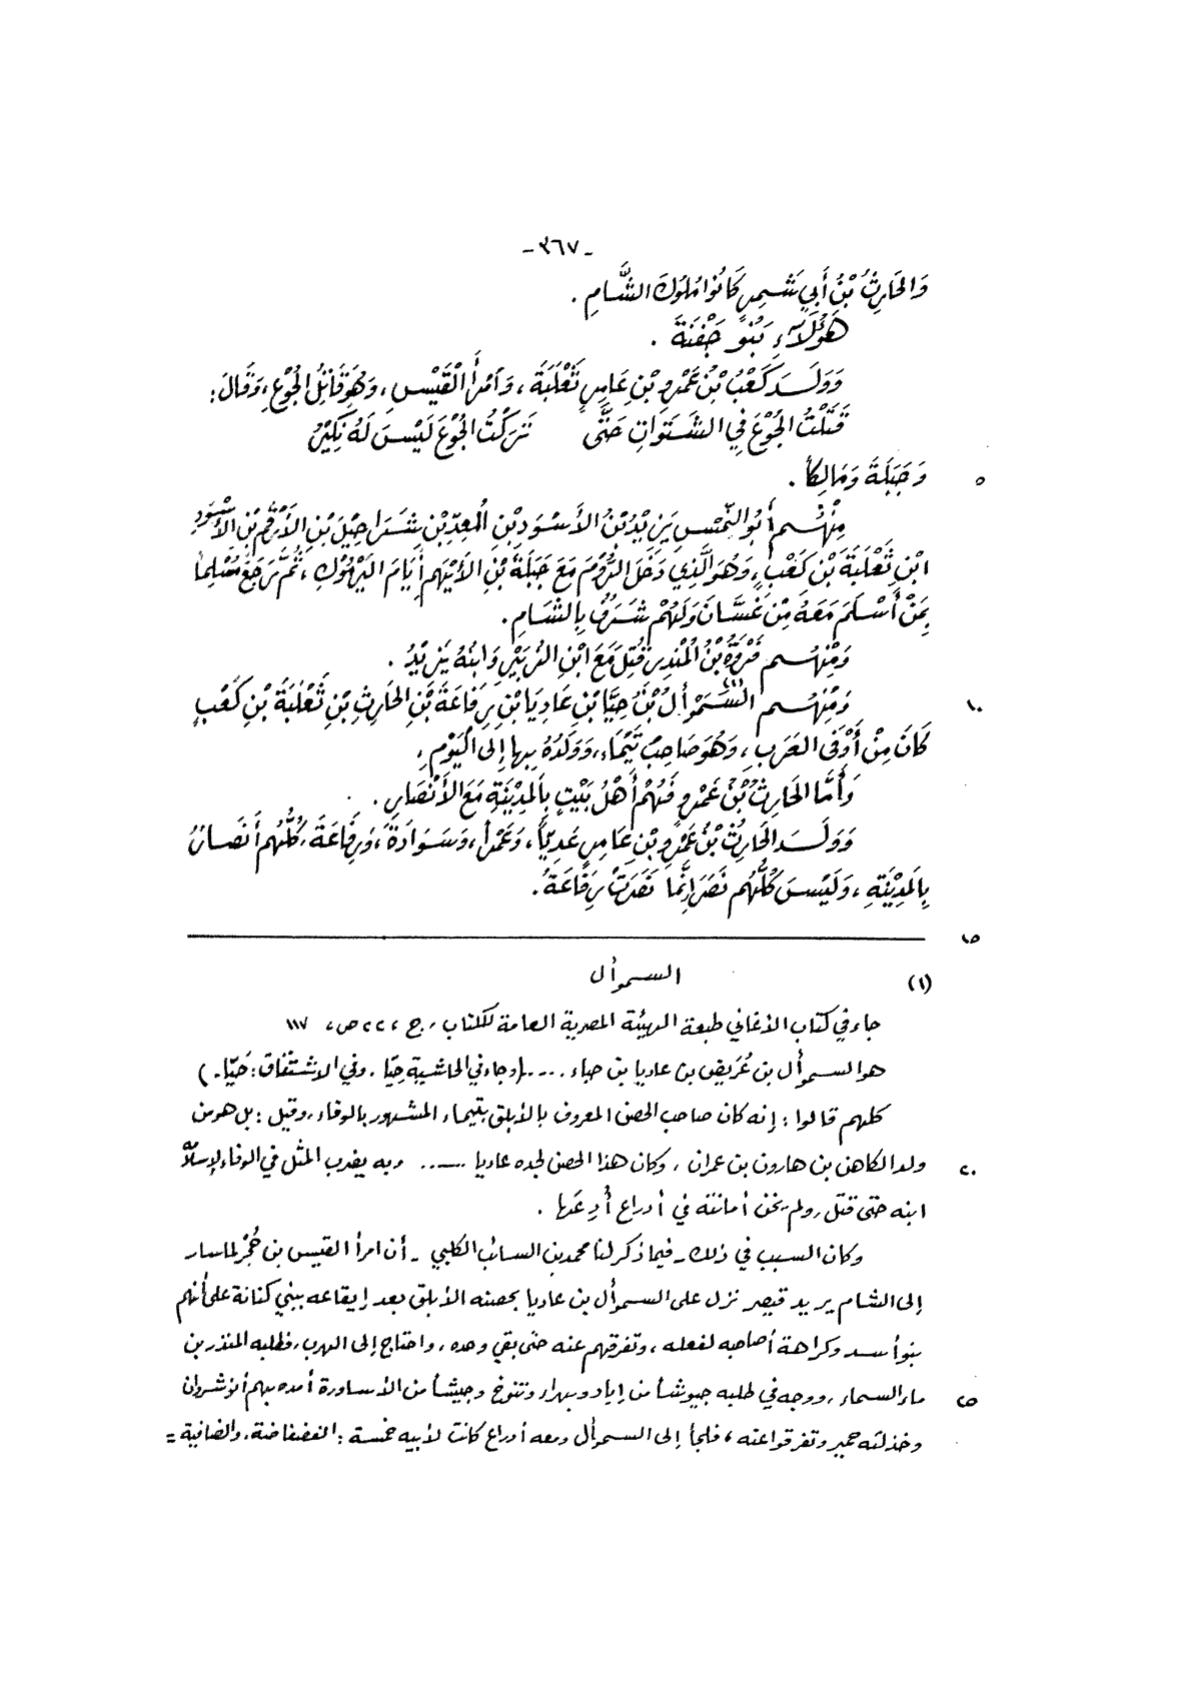 -٣٦٧-
وَالحَارِثُ بْنُ أَبِي شَمِرٍ كَانُوا مُلُوكَ الشَّامِ .
هَؤُلَاءِ بَنُو جَفْنَةَ .
وَوَلَدَ كَعْبُ بْنُ عَمْرِو بْنِ عَامِرٍ ثَعْلَبَةَ ، وَامْرَأَ الْقَيْسِ ، وَهُوَ قَاتِلُ الجُوْعِ ، وَقَالَ :
قَتَلْتُ الجُوْعَ فِي الشَّتَوَاتِ حَتَّى تَرَكْتُ الجُوْعَ لَيْسَ لَهُ نَكِيْرُ
٥ وَجَبَلَةَ وَمَالِكاً .
مِنْهُم أَبُو النَّمِسِ يَزِيْدُ بْنُ الأَسْوَدِ بْنِ المُعِدِّ بْنِ شَرَاحِيْلَ بْنِ الأَرْقَمِ بْنِ الأَسْوَدِ
ابْنِ ثَعْلَبَةَ بْنِ كَعْبٍ ، وَهُوَ الَّذِي دَخَلَ الرُّوْمَ مَعَ جَبَلَةَ بْنِ الأَيْهَمِ أَيَامَ اليَرْمُوكِ ، ثُمَّ رَجَعَ مُسْلِماً
بِمَنْ أَسْلَمَ مَعَهُ مِنْ غَسَّانَ وَلَهُمْ شَرَفٌ بِالشَّامِ .
وَمِنْهُم فَرْوَةُ بْنُ المُنْذِرِ قُتِلَ مَعَ ابْنِ الزُّبَيْرِ وَابْنُهُ يَزِيْدُ .
١٠ وَمِنْهُم السَّمَوْأَلُ (١) بْنُ حِيَّا بْنِ عَادِيَا بْنِ رِفَاعَةَ بْنِ الحَارِثِ بْنِ ثَعْلَبَةَ بْنِ كَعْبٍ
كَانَ مِنْ أَوْفَى العَرَبِ ، وَهُوَ صَاحِبُ تَيْمَاءَ ، وَوَلَدُهُ بِها إِلَى اليَوْمِ ،
وَأَمَّا الحَارِثُ بْنُ عَمْرٍو فَهُمْ أَهْلُ بَيْتٍ بِالمَدِيْنَةِ مَعَ الأَنْصَارِ .
وَوَلَدَ الحَارِثُ بْنُ عَمْرِو بْنِ عَامِرٍ عَدِيّاً ، وَعَمْراً ، وَسَوَادَةَ ، وَرِفَاعَةَ ، كُلُّهُم أَنْصَارٌ
بِالمَدِيْنَةِ ، وَلَيْسَ كُلُّهُم نَصَرَ إِنَّمَا نَصَرَتْ رِفَاعَةُ .
١٥
(١) السموأل
جاء في كتاب الأغاني طبعة الهيئة المصرية العامة للكتاب ، ج ، ٢٢ ص ، ١١٧
هو السموأل بن عُرَيض بن عاديا بن حباء ..... (وجاء في الحاشية حِيّا . وفي الاشتقاق : حَيّا . )
كلهم قالوا : إنه كان صاحب الحصن المعروف بالأبلق بتيماء المشهور بالوفاء ، وقيل : بل هو من
٢٠ ولد الكاهن بن هارون بن عمران ، وكان هذا الحصن لجده عاديا ...... وبه يضرب المثل في الوفاء لإسلامه
ابنه حتى قتل ، ولم يخن أمانته في أدراع أُودِعَها .
وكان السبب في ذلك - فيما ذكر لنا محمد بن السائب الكلبي - أن امرأ القيس بن حُجْر لما سار
إلى الشام يريد قيصر نزل على السموأل بن عاديا بحصنه الأبلق بعد إيقاعه ببني كنانة على أنهم
بنو أسد وكراهة أصاحبه لفعله ، وتفرقهم عنه حتى بقي وحده ، واحتاج إلى الهرب ، فطلبه المنذر بن
٢٥ ماء السماء ، ووجه في طلبه جيوشاً من إياد وبهراء وتنوخ وجيشاً من الأساورة أمده بهم أنوشروان
وخذلته حمير وتفرقوا عنه ، فلجأ إلى السموأل ومعه أدراع كانت لأبيه خمسة : الفضفاضة ، والضافية =